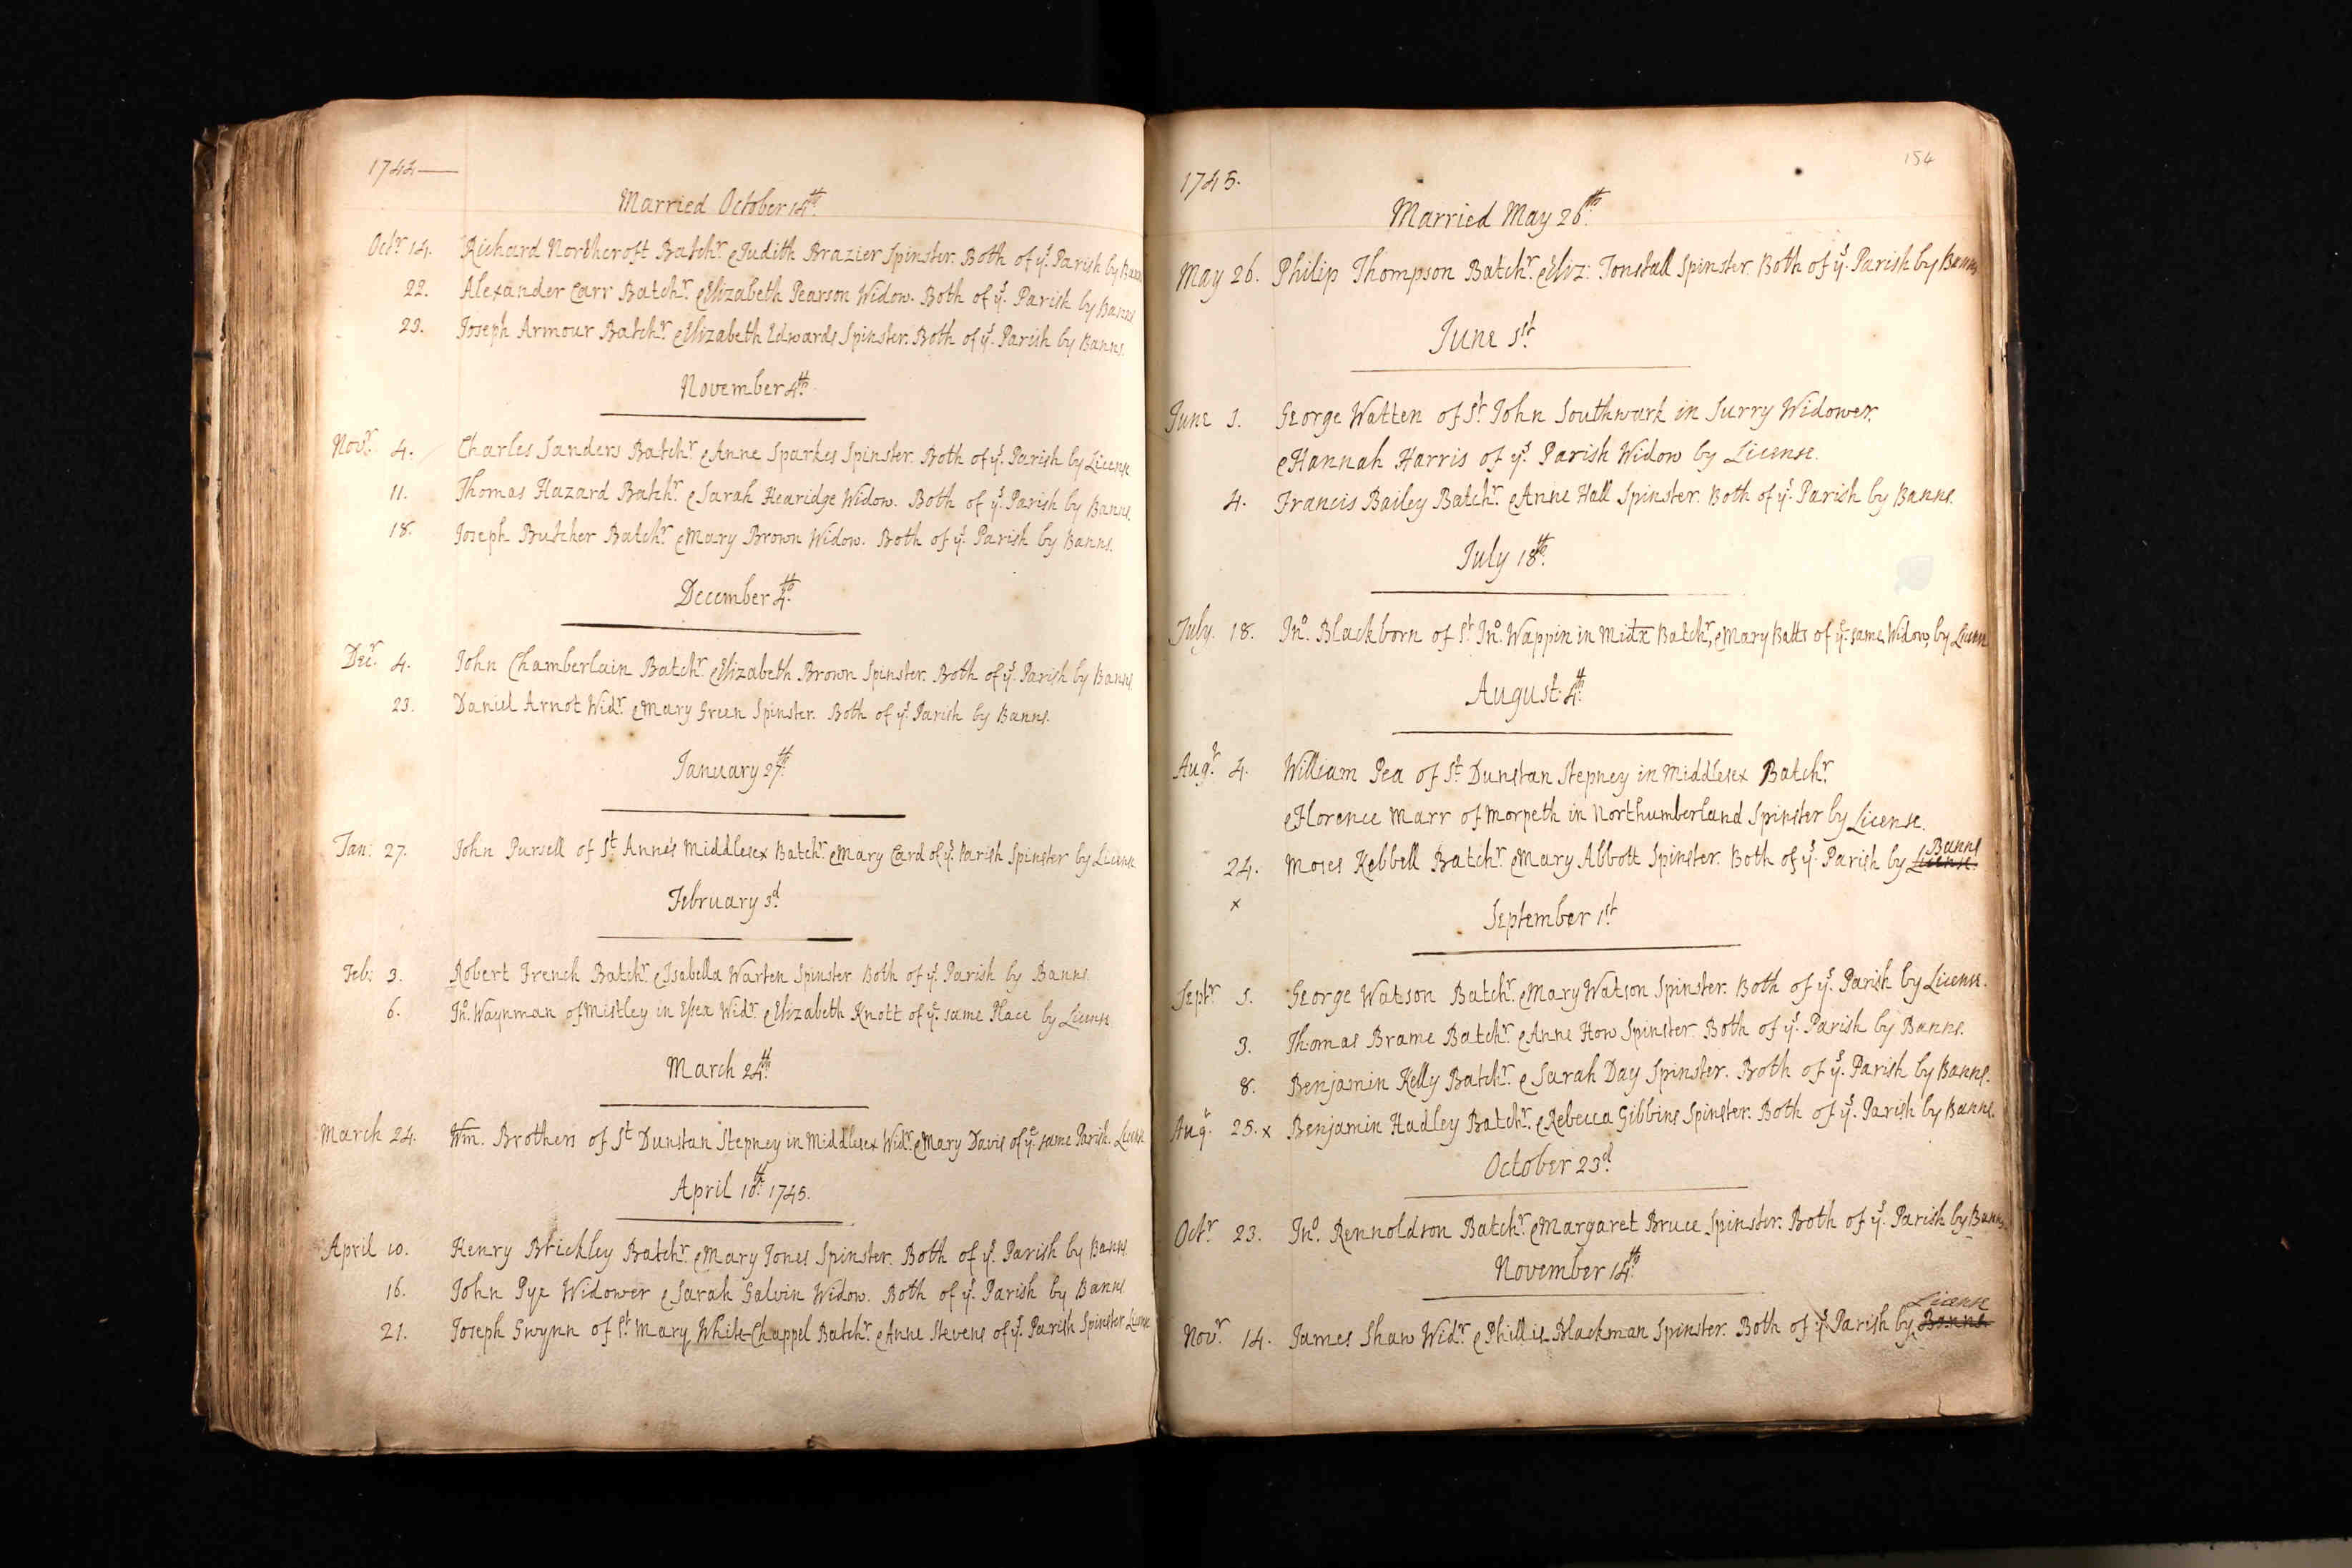 1744
Married October 14th.
Octr 14. Richard Northcroft Batchr. & Judith Brazier Spinster. Both of ys. Parish by Banns
22. Alexander Carr Batchr. & Elizabeth Pearson Widow. Both of ys. Parish by Banns
29. Joseph Armour Batchr. & Elizabeth Edwards Spinster. Both of ys. Parish by Banns.
November 4th.
Novr. 4. Charles Sanders Batchr. & Anne Sparkes Spinster. Both of ys. Parish by License
11. Thomas Hazard Batchr. & Sarah Hearidge Widow. Both of ys. Parish by Banns.
18. Joseph Butcher Batchr. & Mary Brown Widow. Both of ys. Parish by Banns.
December 4th.
Decr. 4. John Chamberlain Batchr. & Elizabeth Brown Spinster. Both of ys. Parish by Banns.
23. Daniel Arnot Widr. & Mary Green Spinster. Both of ys. Parish by Banns.
January 27th.
Jan: 27. John Pursell of St. Anne's Middlesex Batchr. & Mary Card of ys. Parish Spinster by License
February 3d.
Feb: 3. Robert French Batchr. & Isabella Warten Spinster Both of ys. Parish by Banns.
6. Jno. Waynman of Mistley in Essex Widr. & Elizabeth Knott of ye. same Place by License
March 24th.
March 24. Wm. Brothers of St. Dunstan Stepney in Middlesex Widr. & Mary Davis of ye. same Parish. License
April 10th. 1745.
April 10. Henry Brickley Batchr. & Mary Jones Spinster. Both of ys. Parish by Banns.
16. John Pye Widower & Sarah Galvin Widow. Both of ys. Parish by Banns
21. Joseph Gwynn of St. Mary White-Chappel Batchr. & Anne Stevens of ys. Parish Spinster License
1745.
154
Married May 26th.
May 26. Philip Thompson Batchr. & Eliz: Tonstall Spinster. Both of ys. Parish by Banns
June 1st.
June 1. George Watten of St. John Southwark in Surry Widower.
& Hannah Harris of ys. Parish Widow by License.
4. Francis Bailey Batchr. & Anne Hall Spinster. Both of ys. Parish by Banns.
July 18th.
July. 18. Jno. Blackborn of St. Jno. Wappin in Midx Batchr, & Mary Batts of ye. same, Widow, by License
August 4th.
Augt. 4. William Pea of St. Dunstan Stepney in Middlesex Batchr.
& Florence Marr of Morpeth in Northumberland Spinster by License.
24. Moses Kebbell Batchr. & Mary Abbott Spinster. Both of ys. Parish by License. Banns
x
September 1st.
Septr 1. George Watson Batchr. & Mary Watson Spinster. Both of ys. Parish by License.
3. Thomas Brame Batchr. & Anne How Spinster. Both of ys. Parish by Banns.
8. Benjamin Kelly Batchr. & Sarah Day Spinster. Both of ys. Parish by Banns.
Augt. 25. x Benjamin Hadley Batchr. & Rebecca Gibbins Spinster. Both of ys. Parish by Banns.
October 23d.
Octr 23. Jno. Rennoldson Batchr. & Margaret Bruce Spinster. Both of ys. Parish by Banns.
November 14th.
Novr. 14. James Shaw Widr. & Phillis Blackman Spinster. Both of ys. Parish by Banns License